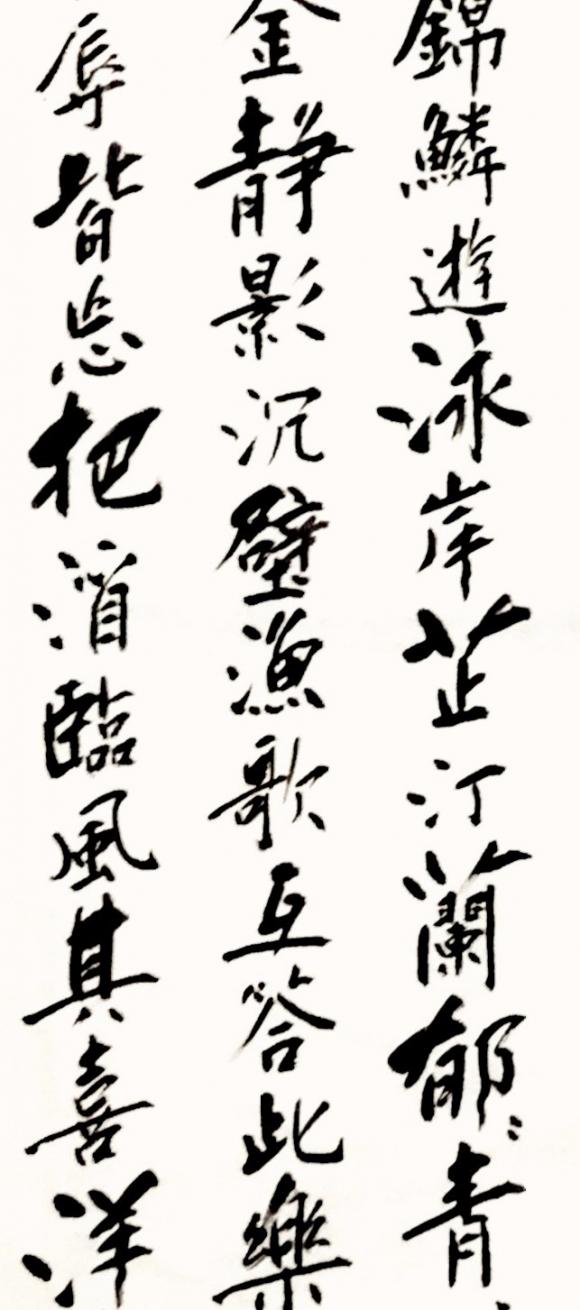 錦鱗遊泳岸芷汀蘭郁〻青
金靜影沉璧漁歌互答此樂
辱皆忘把酒臨風其喜洋